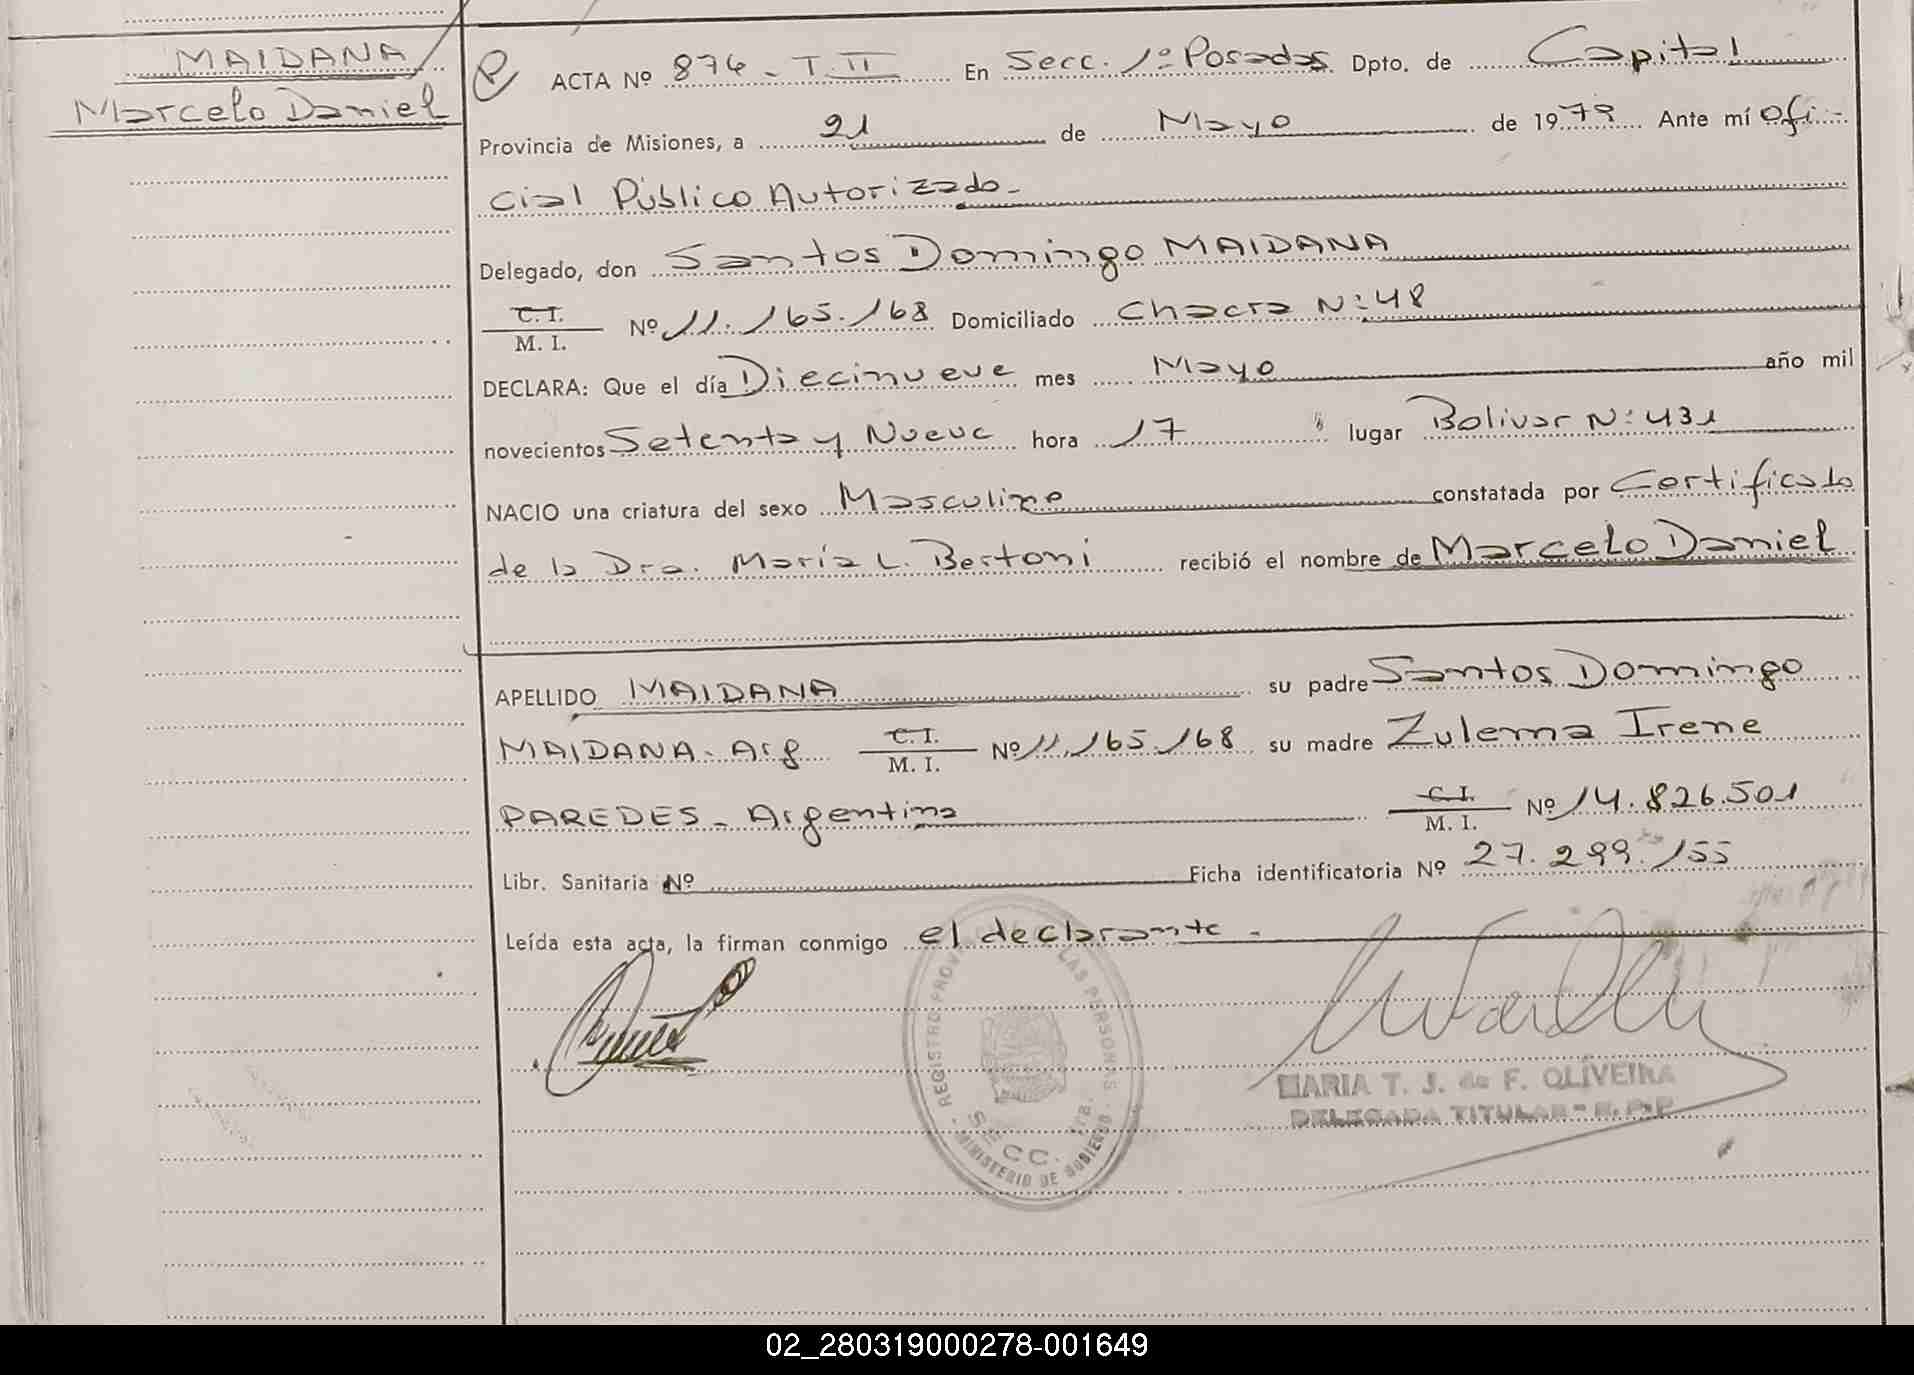 MAIDANA
Marcelo Daniel
ACTA Nº 874 - T II En Secc. 1º Posadas Dpto. de Capital
Provincia de Misiones, a 21 de Mayo de 1979 Ante mí Ofi-
cial Público Autorizado-
Delegado, don Santos Domingo MAIDANA
C. I.
M. I. Nº 11.165.168 Domiciliado Chacra Nº 48
DECLARA: Que el día Diecinueve mes Mayo año mil
novecientos Setenta y Nueve hora 17 lugar Bolivar Nº 431
NACIO una criatura del sexo Masculino constatada por Certificado
de la Dra. María L. Bertoni recibió el nombre de Marcelo Daniel
APELLIDO MAIDANA su padre Santos Domingo
MAIDANA - Arg C. I. M. I. Nº 11.165.168 su madre Zulema Irene
PAREDES - Argentina C. I. M. I. Nº 14.826.501
Libr. Sanitaria Nº Ficha identificatoria Nº 27.299.155
Leída esta acta, la firman conmigo el declarante -
REGISTRO PROV. LAS PERSONAS
SECC.
MINISTERIO DE GOBIERNO
MARIA T. J. de F. OLIVEIRA
DELEGADA TITULAR - R. P. P
02_280319000278-001649